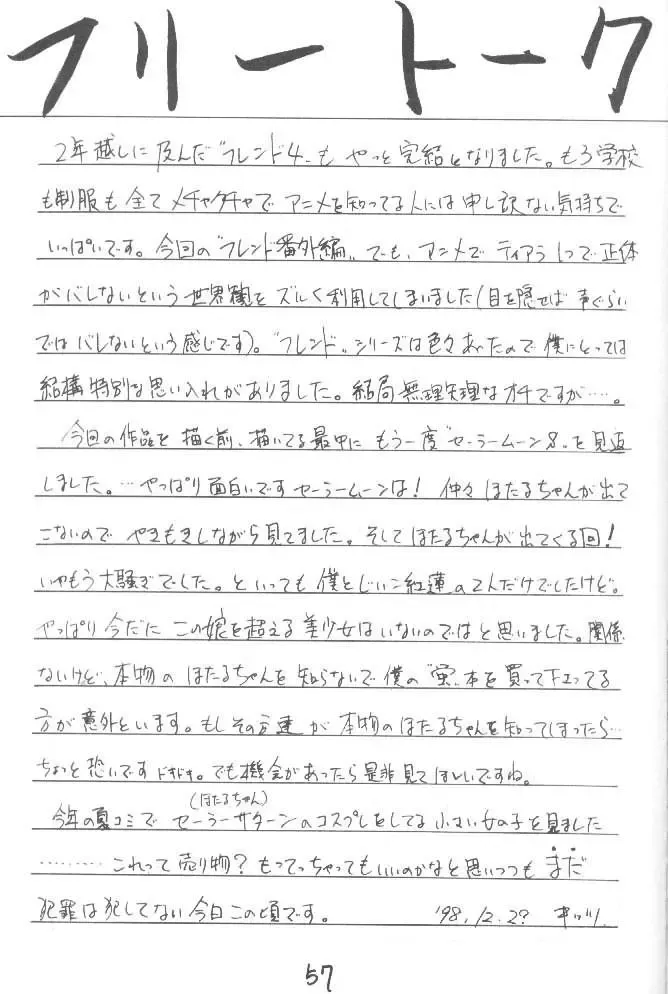 フリートーク
2年越しに及んだ〝フレンド4〟もやっと完結となりました。もう学校
も制服も全てメチャクチャでアニメを知ってる人には申し訳ない気持ちで
いっぱいです。今回の〝フレンド番外編〟でも、アニメでティアラ1つで正体
がバレないという世界観をズルく利用してしまいました(目を隠せば声ぐらい
ではバレないという感じです)。〝フレンド〟シリーズは色々あったので僕にとっては
結構特別な思い入れがありました。結局無理矢理なオチですが……。
今回の作品を描く前、描いてる最中にもう一度〝セーラームーンS〟を見返
しました。…やっぱり面白いですセーラームーンは!仲々ほたるちゃんが出て
こないのでやきもきしながら見てました。そしてほたるちゃんが出てくる回!
いやもう大騒ぎでした。といっても僕とじいこ紅蓮の2人だけでしたけど。
やっぱり今だにこの娘を超える美少女はいないのではと思いました。関係
ないけど、本物のほたるちゃんを知らないで僕の〝蛍〟本を買って下さってる
方が意外といます。もしその方達が本物のほたるちゃんを知ってしまったら…
ちょっと恐いですドキドキ。でも機会があったら是非見てほしいですね。
(ほたるちゃん)
今年の夏コミでセーラーサターンのコスプレをしてる小さい女の子を見ました
………これって売り物?もってっちゃってもいいのかなと思いつつもまだ
犯罪は犯してない今日この頃です。 '98.12.2? キッツ
57